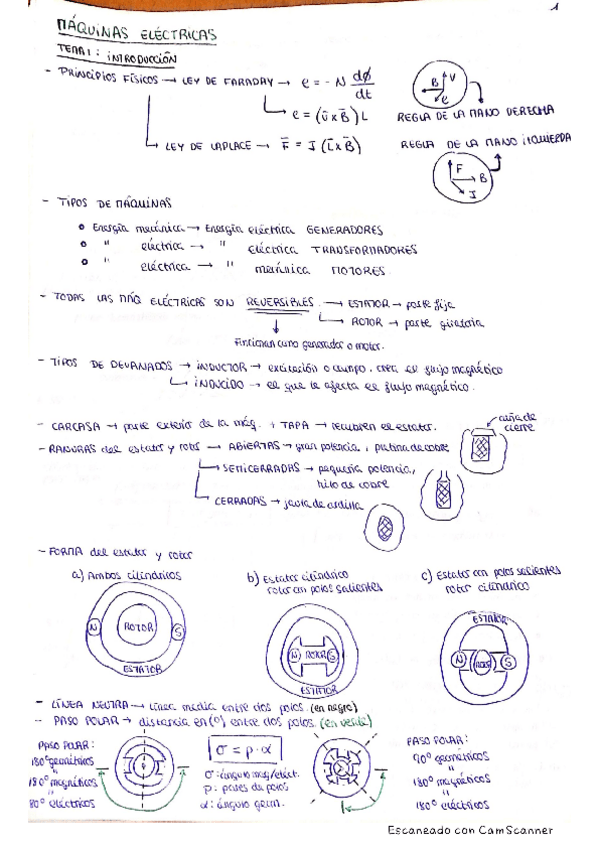 1
MÁQUINAS ELÉCTRICAS
TEMA 1: INTRODUCCIÓN
- PRINCIPIOS FÍSICOS → LEY DE FARADAY → e = - N dϕ/dt
B V e
↳ e = (v̄ x B̄) L
REGLA DE LA MANO DERECHA
↳ LEY DE LAPLACE → F̄ = I (L̄ x B̄)
REGLA DE LA MANO IZQUIERDA
F B I
- TIPOS DE MÁQUINAS
Energía mecánica → Energía eléctrica GENERADORES
" eléctrica → " eléctrica TRANSFORMADORES
" eléctrica → " mecánica MOTORES.
- TODAS LAS MÁQ ELÉCTRICAS SON REVERSIBLES. → ESTATOR → parte fija
↳ ROTOR → parte giratoria
Funcionan como generador o motor.
- TIPOS DE DEVANADOS → INDUCTOR → excitación o campo. crea el flujo magnético
↳ INDUCIDO → el que le afecta el flujo magnético.
- CARCASA → parte exterior de la máq. + TAPA → recubren el estator.
cuña de cierre
- RANURAS del estator y rotor → ABIERTAS → gran potencia, pletina de cobre
↳ SEMICERRADAS → pequeña potencia, hilo de cobre
↳ CERRADAS → jaula de ardilla
- FORMA del estator y rotor
a) Ambos cilíndricos
b) Estator cilíndrico rotor con polos salientes
c) Estator con polos salientes rotor cilíndrico
N ROTOR S ESTATOR
N ROTOR S ESTATOR
ESTATOR N ROTOR S
- LÍNEA NEUTRA → línea media entre dos polos. (en negro)
- PASO POLAR → distancia en (°) entre dos polos. (en verde)
PASO POLAR:
180° geométricos
180° magnéticos
80° eléctricos
σ = p·α
σ: ángulo mag/eléct.
p: pares de polos
α: ángulo geom.
PASO POLAR:
90° geométricos
180° magnéticos
180° eléctricos
Escaneado con CamScanner